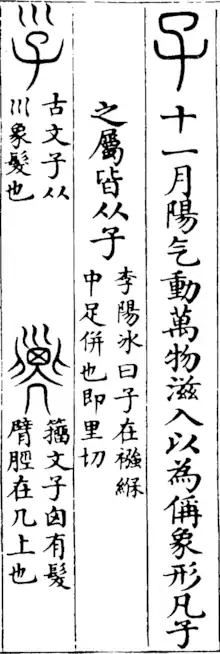 子 十一月陽气動萬物滋入以為偁象形凡子
之屬皆从子
李陽冰曰子在襁緥
中足併也即里切
古文子从
巛象髮也
籀文子囟有髮
臂脛在几上也